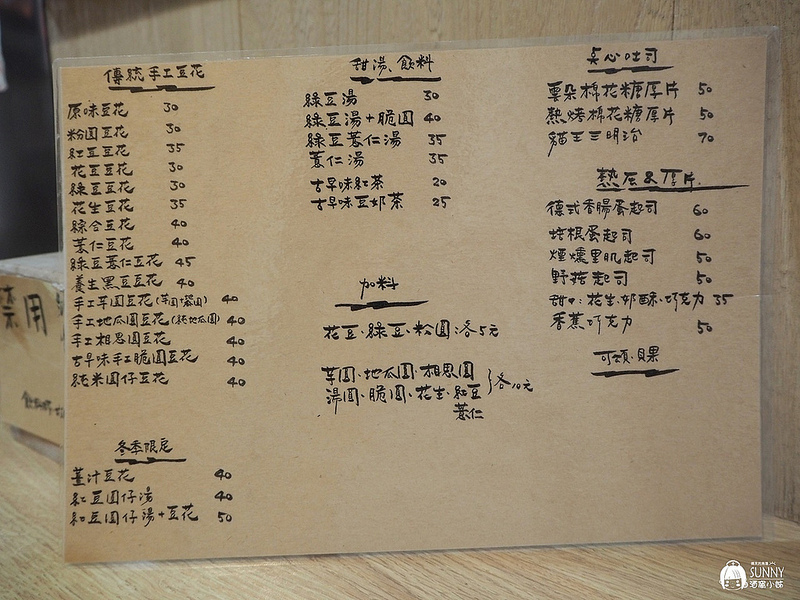 傳統手工豆花
原味豆花 30
粉圓豆花 30
紅豆豆花 35
花豆豆花 30
綠豆豆花 30
花生豆花 35
綜合豆花 40
薏仁豆花 40
綠豆薏仁豆花 45
養生黑豆豆花 40
手工芋圓豆花(芋圓+番圓) 40
手工地瓜圓豆花(純地瓜圓) 40
手工相思圓豆花 40
古早味手工脆圓豆花 40
純米圓仔豆花 40
冬季限定
薑汁豆花 40
紅豆圓仔湯 40
紅豆圓仔湯+豆花 50
甜湯、飲料
綠豆湯 30
綠豆湯+脆圓 40
綠豆薏仁湯 35
薏仁湯 35
古早味紅茶 20
古早味豆奶茶 25
加料
花豆、綠豆、粉圓:各5元
芋圓、地瓜圓、相思圓
湯圓、脆圓、花生、紅豆
薏仁
各10元
点心吐司
雲朵棉花糖厚片 50
熱烤棉花糖厚片 50
貓王三明治 70
熱压&厚片
德式香腸蛋起司 60
培根蛋起司 60
煙燻里肌起司 50
野菇起司 50
甜: 花生.奶酥.巧克力 35
香蕉巧克力 50
可頌.貝果
禁用
SUNNY